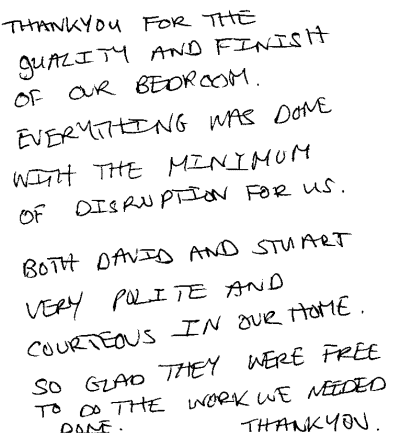 THANKYOU FOR THE
QUALITY AND FINISH
OF OUR BEDROOM.
EVERYTHING WAS DONE
WITH THE MINIMUM
OF DISRUPTION FOR US.
BOTH DAVID AND STUART
VERY POLITE AND
COURTEOUS IN OUR HOME.
SO GLAD THEY WERE FREE
TO DO THE WORK WE NEEDED
DONE. THANKYOU.